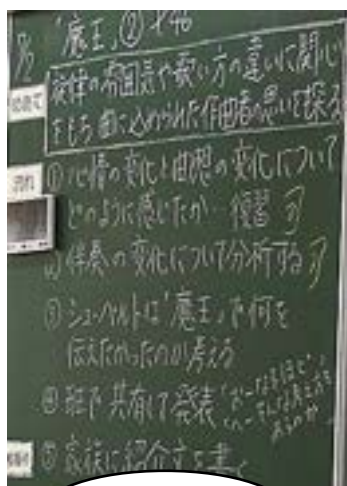 「魔王」② P46
めあて
旋律の雰囲気や歌い方の違いに関心
をもち 曲に込められた作曲者の思いを探る
流れ
① 心情の変化と曲想の変化について
どのように感じたか…復習
② 伴奏の変化について分析する
③ シューベルトは「魔王」で何を
伝えたかったのか考える
④ 班で共有して発表
「おーなるほど」
⑤ 家族に紹介文を書く